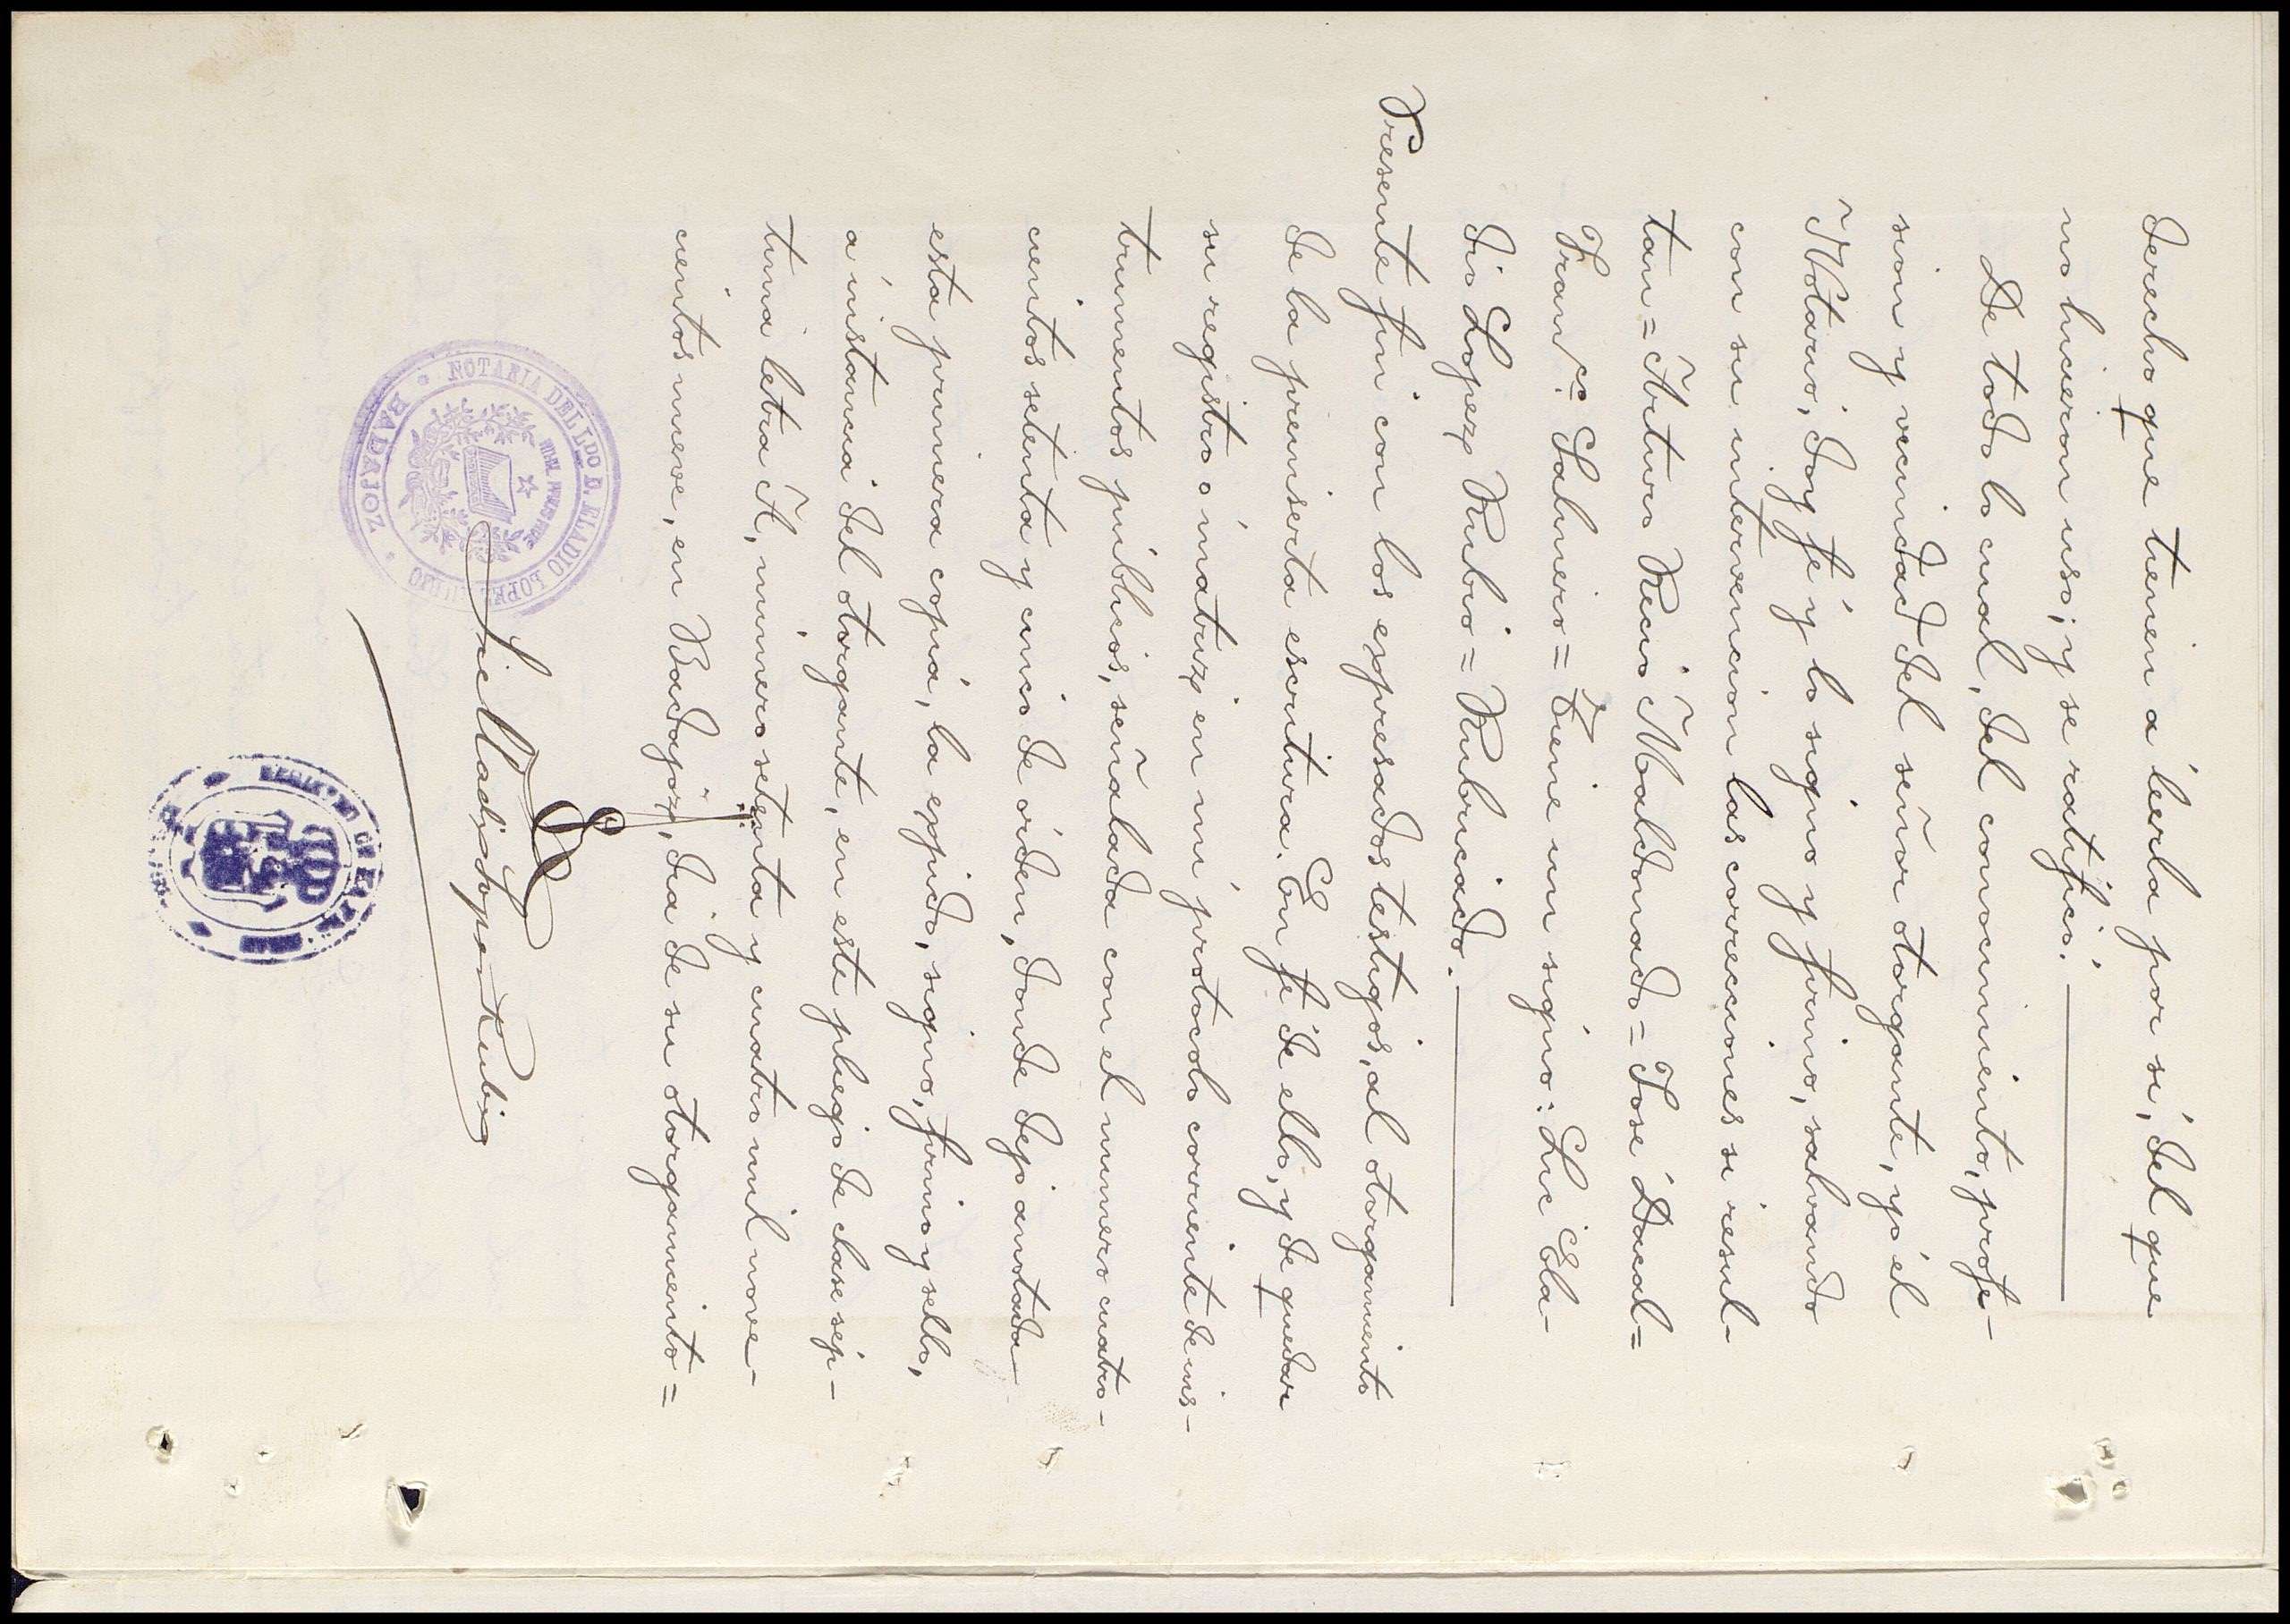 derecho que tienen a leerla por sí, del que
no hicieron uso; y se ratificó.
De todo lo cual, del conocimiento, profe-
sion y vecindad del señor otorgante, yo el
Notario, doy fé y lo signo y firmo, salvando
con su intervencion las correcciones si resul-
tan = Arturo Recio Maldonado = José Dacal =
Franco. Salnero = Tiene un signo: Lic Ela-
dio Lopez Rubio = Rubricado.
Presente fuí con los expresados testigos, al otorgamiento
de la preinserta escritura. En fé de ello, y de quedar
su registro o matriz en mi protocolo corriente de ins-
trumentos públicos, señalada con el numero cuatro-
cientos setenta y cinco de orden, donde dejo anotada
esta primera copia, la expido, signo, firmo y sello,
a instancia del otorgante, en este pliego de clase sép-
tima letra A, número setenta y cuatro mil nove-
cientos nueve, en Badajoz, dia de su otorgamiento =
Lic Eladio Lopez Rubio
NOTARIA DEL LDO D. ELADIO LOPEZ RUBIO
BADAJOZ
NIHIL PRIUS FIDE